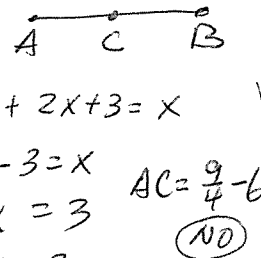 A C B
+ 2x+3 = x
-3 = x
AC = 9/4 - 6
= 3
NO